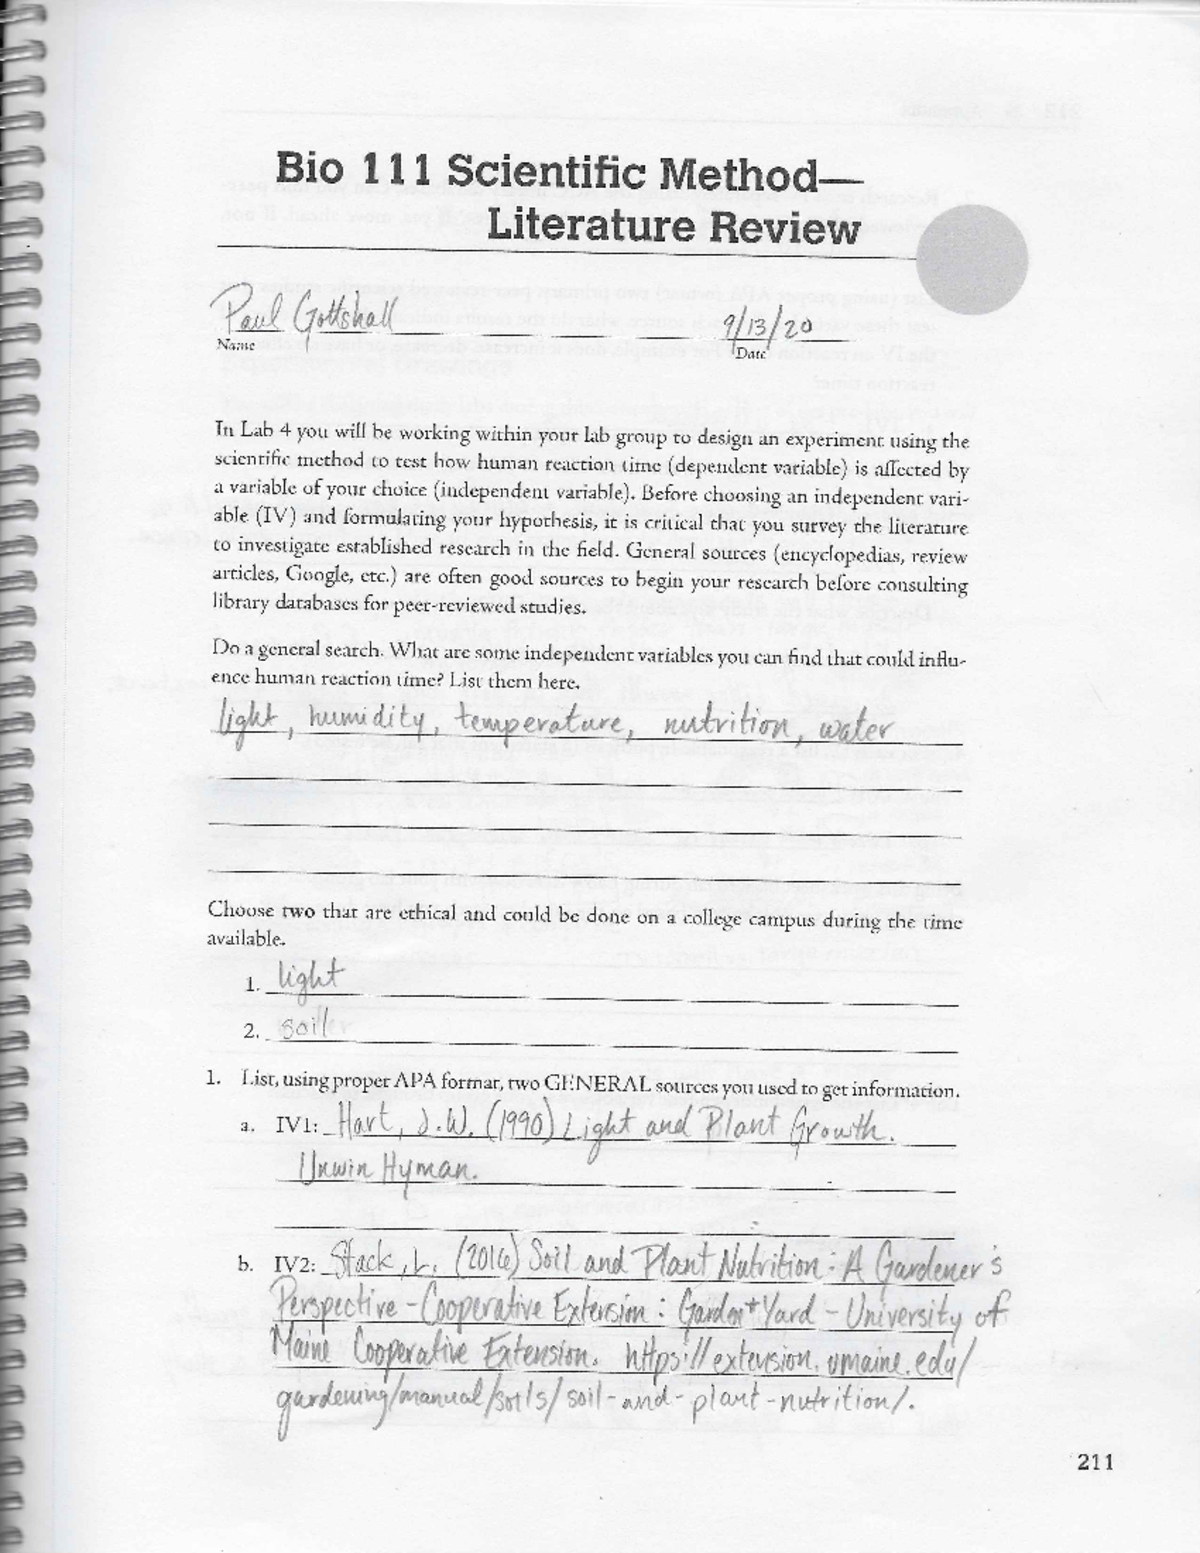 Bio 111 Scientific Method—
Literature Review
Paul Gottshall 9/13/20
Name Date
In Lab 4 you will be working within your lab group to design an experiment using the
scientific method to test how human reaction time (dependent variable) is affected by
a variable of your choice (independent variable). Before choosing an independent vari-
able (IV) and formulating your hypothesis, it is critical that you survey the literature
to investigate established research in the field. General sources (encyclopedias, review
articles, Google, etc.) are often good sources to begin your research before consulting
library databases for peer-reviewed studies.
Do a general search. What are some independent variables you can find that could influ-
ence human reaction time? List them here.
light, humidity, temperature, nutrition, water
Choose two that are ethical and could be done on a college campus during the time
available.
1. light
2. soil
1. List, using proper APA format, two GENERAL sources you used to get information.
a. IV1: Hart, J.W. (1990) Light and Plant Growth.
Unwin Hyman.
b. IV2: Stack, L. (2016) Soil and Plant Nutrition: A Gardener's
Perspective - Cooperative Extension: Garden + Yard - University of
Maine Cooperative Extension. https://extension.umaine.edu/
gardening/manual/soils/soil-and-plant-nutrition/.
211